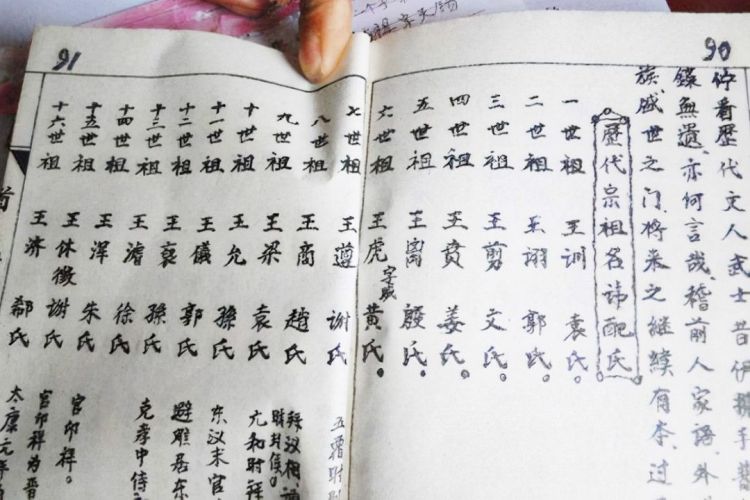 90
看歷代文人武士昔伊
錄無遺,亦何言哉,稽前人家語,外
族,盛世之门,将来之继续有本,过
歷代宗祖名讳配氏
一世祖 王训 袁氏。
二世祖 王翊 郭氏。
三世祖 王剪 文氏。
四世祖 王贲 姜氏。
五世祖 王离 殷氏。
六世祖 王虎 字威 黄氏。
91
七世祖 王遵 谢氏
八世祖 王商 趙氏 拜汉相 时封侯
九世祖 王梁 袁氏 亢和时拜
十世祖 王允 孫氏 东汉末官
十一世祖 王儀 郭氏 避难居东
十二世祖 王裒 孫氏 克孝中侍
十三世祖 王濬 徐氏
十四世祖 王浑 朱氏
十五世祖 王休徵 谢氏 官印祥。
十六世祖 王济 郗氏 官印祥为晋
太康元年